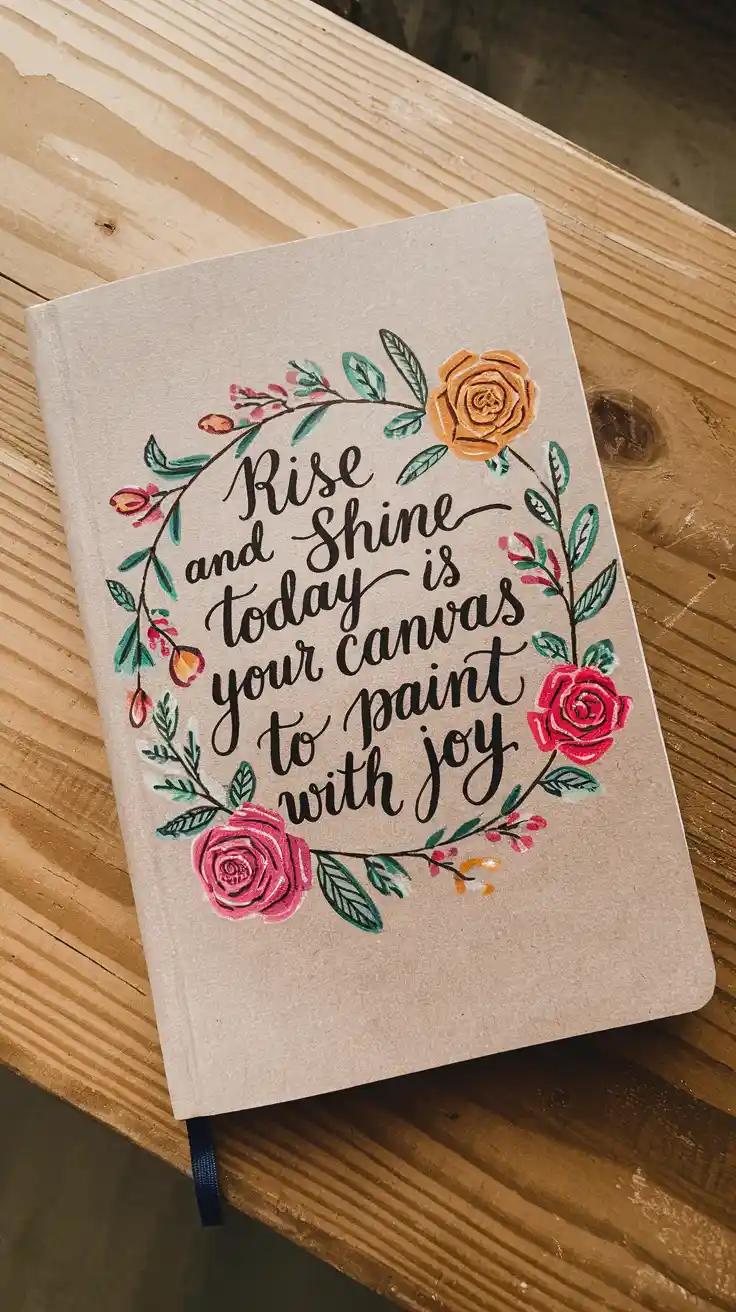 Rise
and Shine
today is
your canvas
to paint
with joy